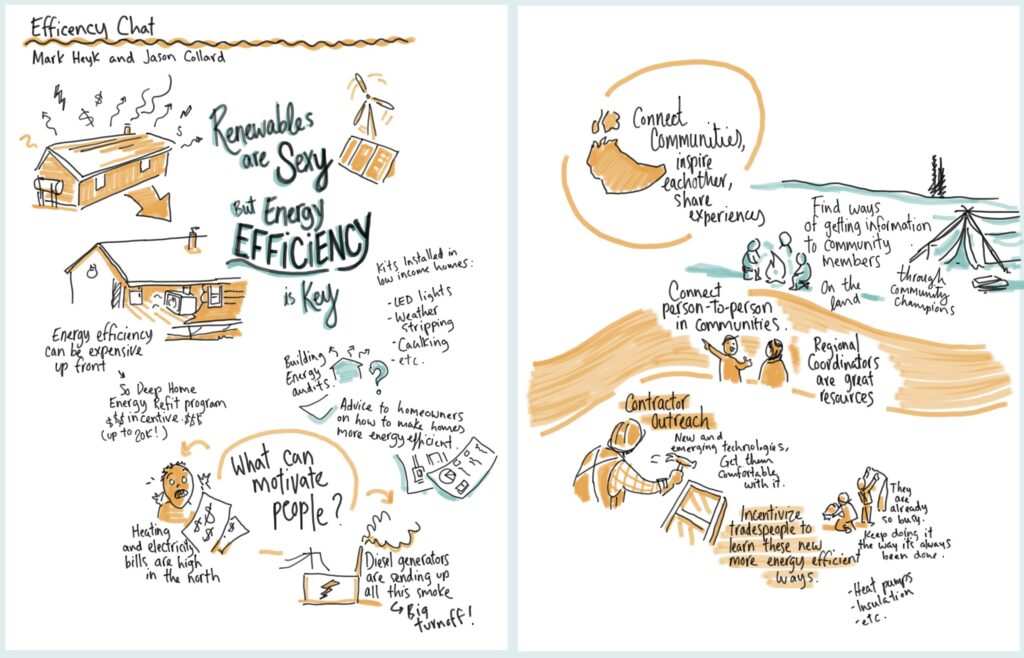 Efficency Chat
Mark Heyk and Jason Collard
Renewables
are Sexy
But Energy
EFFICIENCY
is Key
Energy efficiency
can be expensive
up front
So Deep Home
Energy Refit program
$$$ incentive $$$
(up to 20K!)
Kits Installed in
low income homes:
- LED lights
- Weather
stripping
- Caulking
- etc.
Building
Energy
audits.
?
Advice to homeowners
on how to make homes
more energy efficient.
What can
motivate
people?
Heating
and electricity
bills are high
in the north
Diesel generators
are sending up
all this smoke
Big
turnoff!
Connect
Communities,
inspire
eachother,
share
experiences
Find ways
of getting information
to community
members
On the
land
through
community
champions
Connect
person-to-person
in communities.
Regional
Coordinators
are great
resources
Contractor
Outreach
New and
emerging technologies,
Get them
comfortable
with it.
Incentivize
tradespeople to
learn these new
more energy efficient
ways.
They
are
already
so busy.
Keep doing it
the way its always
been done.
- Heat pumps
- Insulation
- etc.